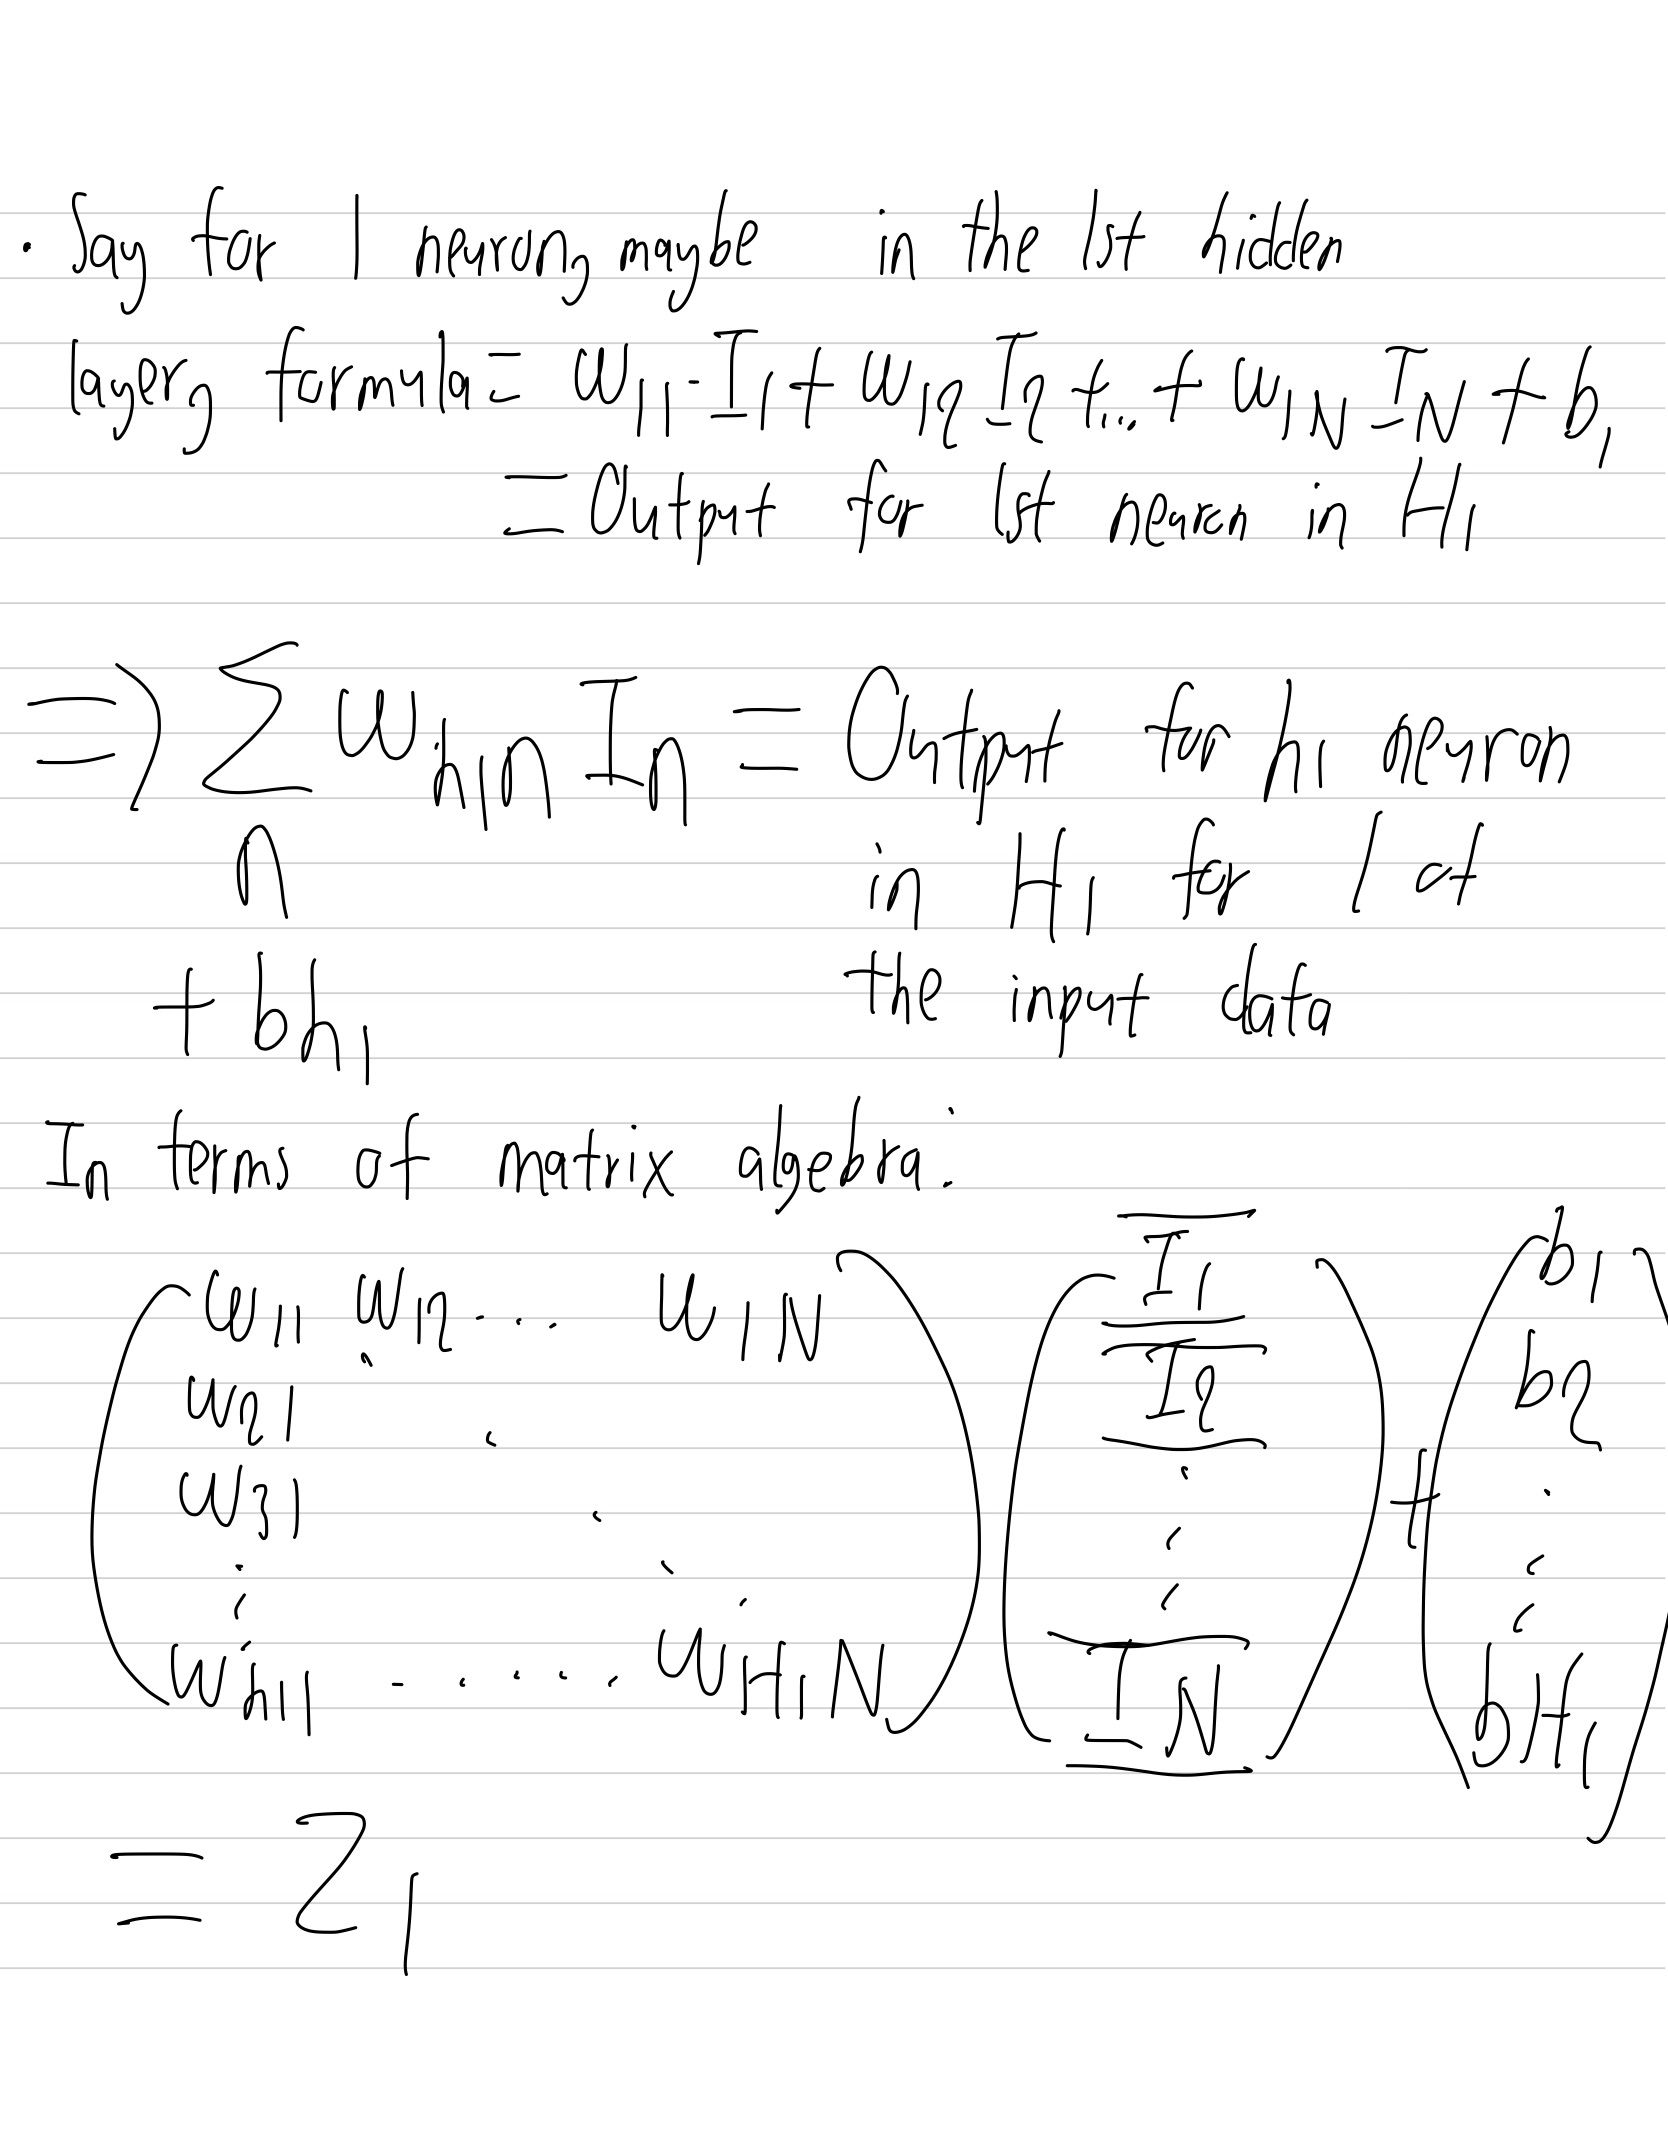 · Say for 1 neuron, maybe in the 1st hidden
layer, formula = W11·I1 + W12 I2 + ... + W1N IN + b1
= Output for 1st neuron in H1
=> Σ Wh1n In = Output for h1 neuron
n in H1 for 1 of
+ bh1 the input data
In terms of matrix algebra:
( W11 W12 ... W1N ) ( I1 ) ( b1 )
W21 . I2 b2
W31 . . + .
: . : :
Wh11 - . . . . WH1N IN bH1
= Z1